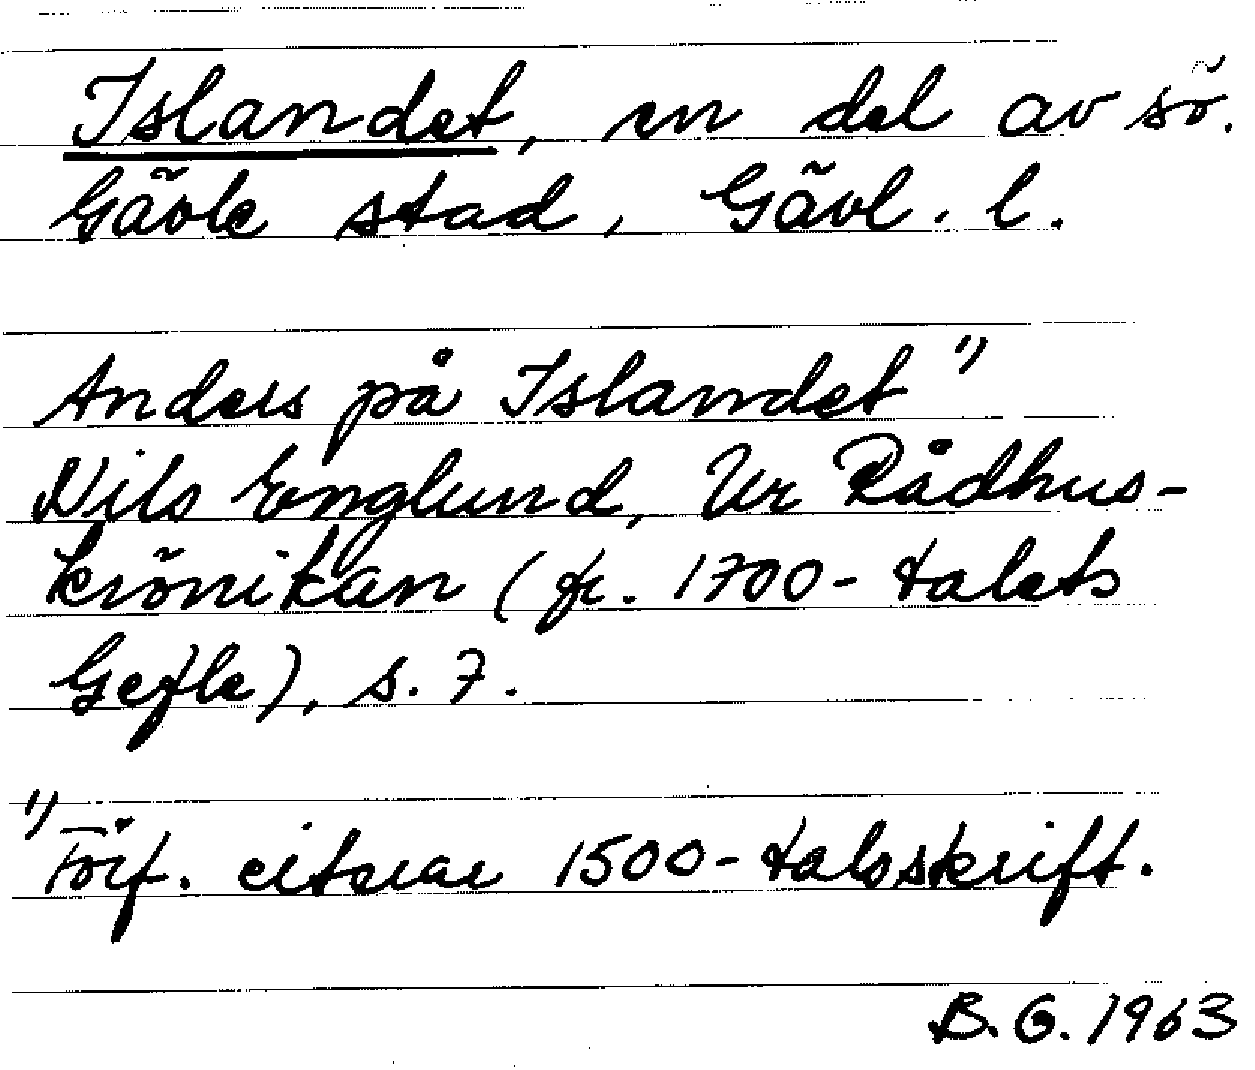 Islandet, en del av sö.
Gävle stad, Gävl. l.
Anders på Islandet 1)
Nils Englund, Ur Rådhus-
krönikan (fr. 1700-talets
Gefle), s. 7.
1) Förf. citerar 1500-talsskrift.
B.G. 1963